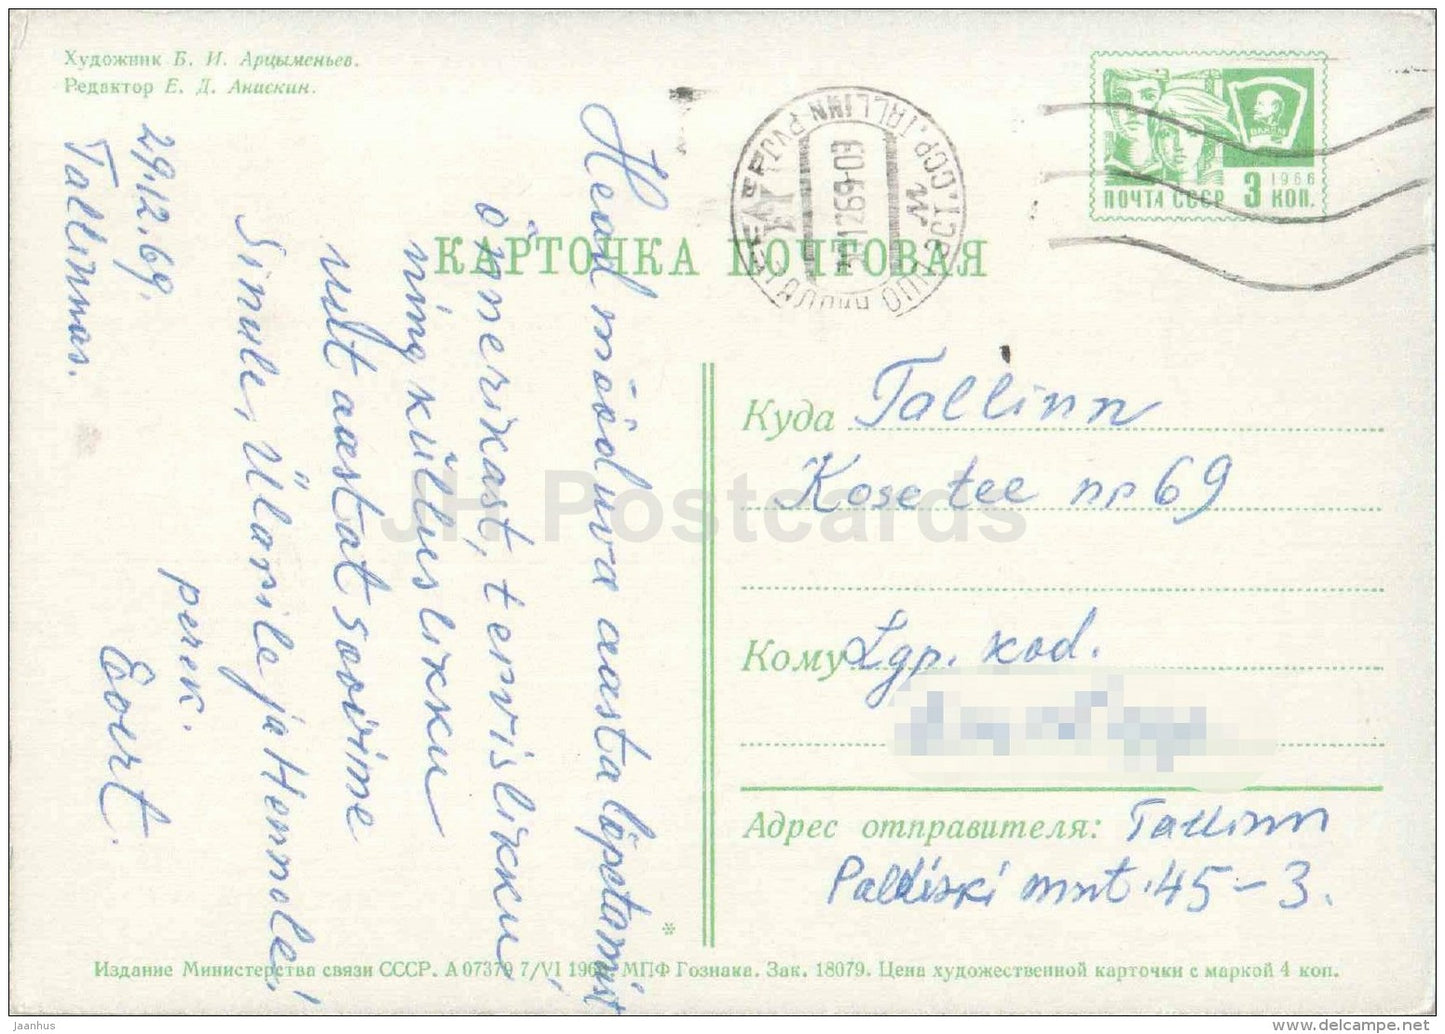 Художник Б. И. Арцыменьев.
Редактор Е. Д. Анискин.
29.12.69.
Tallinnas.
Head mööduva aasta lõpetamist
õnnerikast, tervislikku
ning küllueslikku
uut aastat soovime
Sinule, Ülarile ja Hennole!
perek.
Eoirt.
КАРТОЧКА ПОЧТОВАЯ
TALLINN
1269-03
ВЛКСМ
1966
ПОЧТА СССР 3 КОП.
Куда Tallinn
Kose tee nr 69
Кому Lgp. kod.
Адрес отправителя: Tallinn
Paldiski mnt. 45-3.
Издание Министерства связи СССР. А 07379 7/VI МПФ Гознака. Зак. 18079. Цена художественной карточки с маркой 4 коп.
JH Postcards
jaanhus
delcampe.net